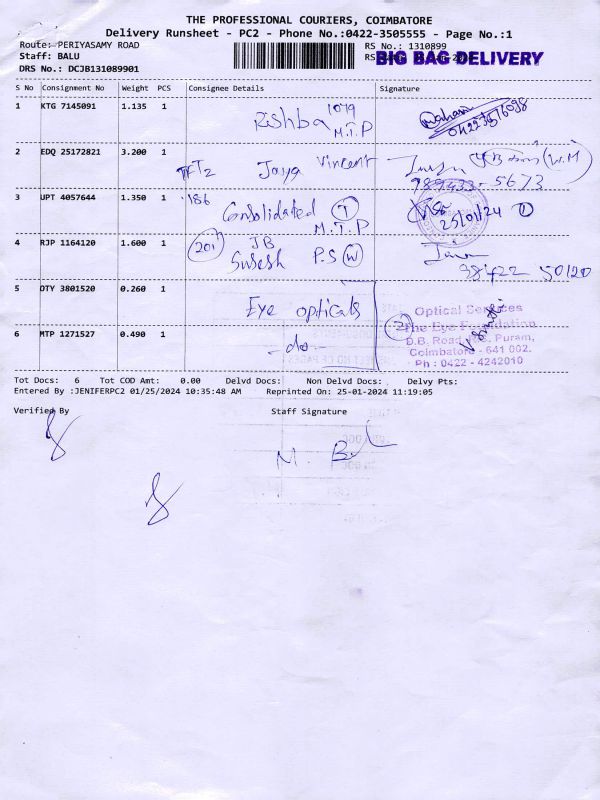 THE PROFESSIONAL COURIERS, COIMBATORE
Delivery Runsheet - PC2 - Phone No.:0422-3505555 - Page No.:1
Route: PERIYASAMY ROAD
RS No.: 1310899
Staff: BALU
RS
BIG BAG DELIVERY
DRS No.: DCJB131089901
S No Consignment No Weight PCS Consignee Details Signature
1 KTG 7145091 1.135 1 Rishba 1079
M.T.P
2 EDQ 25172821 3.200 1 Jaya Vincent
5673
3 UPT 4057644 1.350 1 186 Consolidated T
M.T.P
25/01/24 1
4 RJP 1164120 1.600 1 201 JB
Suresh P.S W
98422 50120
5 DTY 3801520 0.260 1 Eye opticals
Optical Services
The Eye Foundation
D.B. Road, R.S. Puram,
Coimbatore - 641 002.
Ph : 0422 - 4242010
6 MTP 1271527 0.490 1 - do -
2
Tot Docs: 6 Tot COD Amt: 0.00 Delvd Docs: Non Delvd Docs: Delvy Pts:
Entered By :JENIFERPC2 01/25/2024 10:35:48 AM Reprinted On: 25-01-2024 11:19:05
Verified By Staff Signature